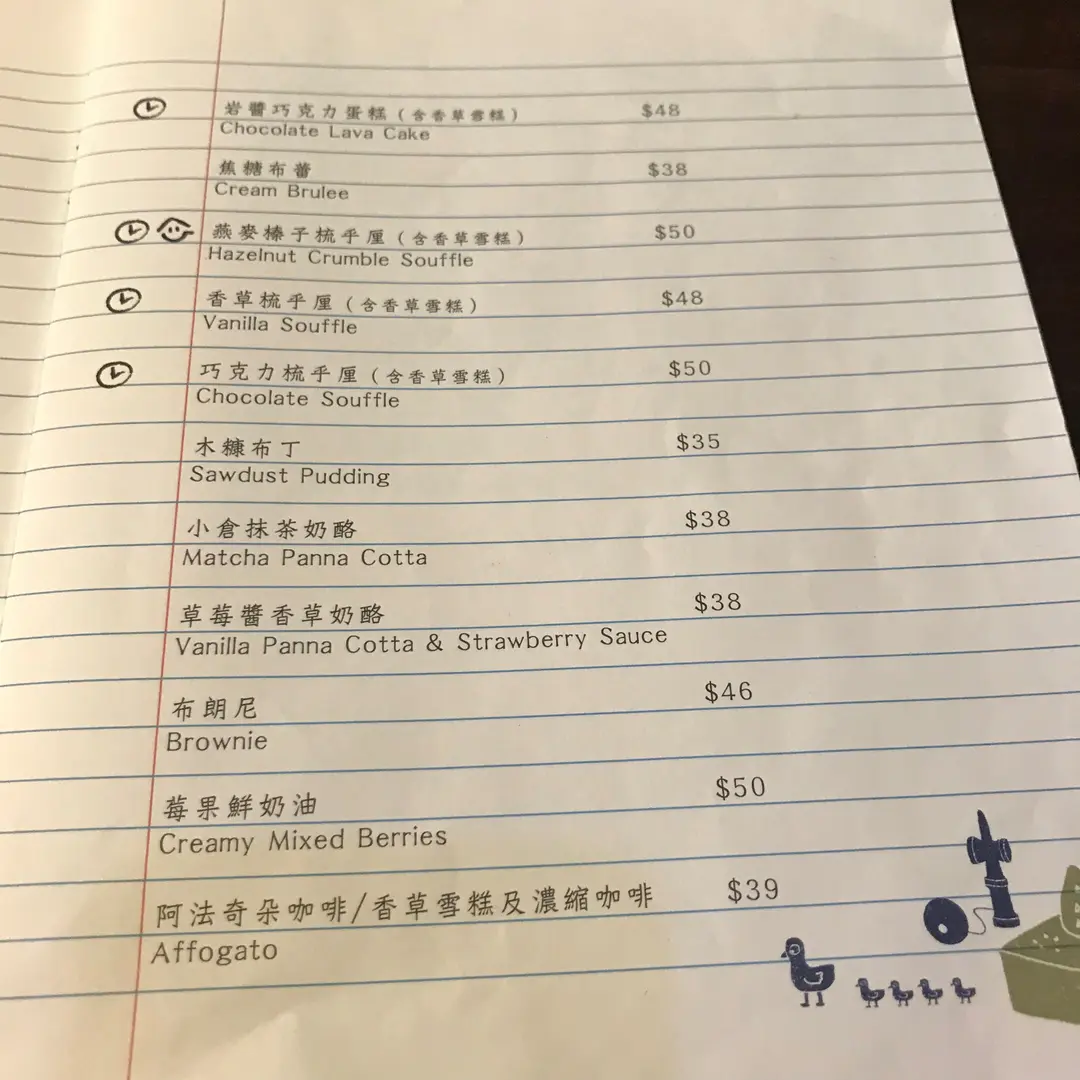 岩醬巧克力蛋糕（含香草雪糕） $48
Chocolate Lava Cake
焦糖布蕾 $38
Cream Brulee
燕麥榛子梳乎厘（含香草雪糕） $50
Hazelnut Crumble Souffle
香草梳乎厘（含香草雪糕） $48
Vanilla Souffle
巧克力梳乎厘（含香草雪糕） $50
Chocolate Souffle
木糠布丁 $35
Sawdust Pudding
小倉抹茶奶酪 $38
Matcha Panna Cotta
草莓醬香草奶酪 $38
Vanilla Panna Cotta & Strawberry Sauce
布朗尼 $46
Brownie
莓果鮮奶油 $50
Creamy Mixed Berries
阿法奇朵咖啡/香草雪糕及濃縮咖啡 $39
Affogato